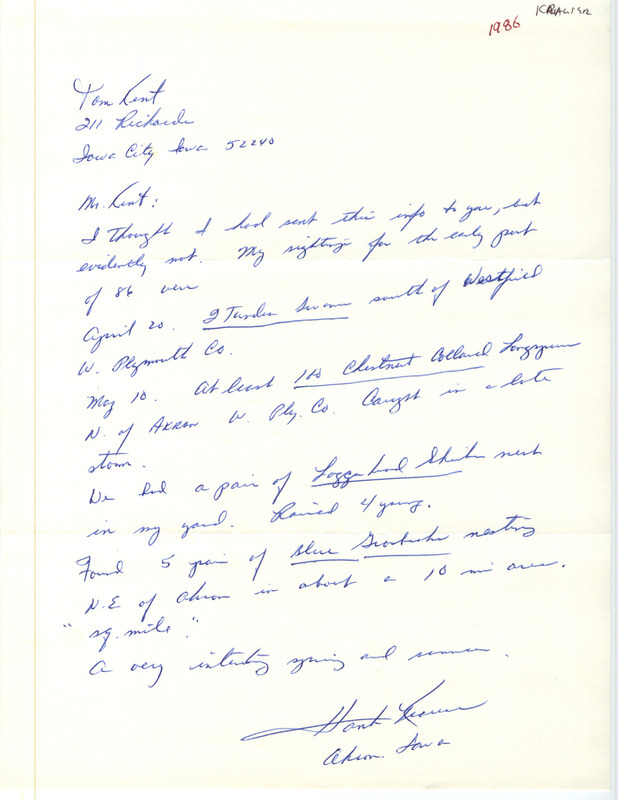 1986 KRAUSER
Tom Kent
211 Richards
Iowa City Iowa 52240
Mr. Kent:
I thought I had sent this info to you, but
evidently not. My sightings for the early part
of 86 were
April 20. 2 Tundra Swans south of Westfield
W. Plymouth Co.
May 10. At least 100 Chestnut Collared Longspurs
N. of Akron W. Ply. Co. Caught in a late
storm.
We had a pair of Loggerhead Shrike nest
in my yard. Raised 4 young.
Found 5 pair of Blue Grosbeaks nesting
N.E of Akron in about a 10 mi area.
"sq. mile".
A very interesting spring and summer.
Hank
Akron Iowa